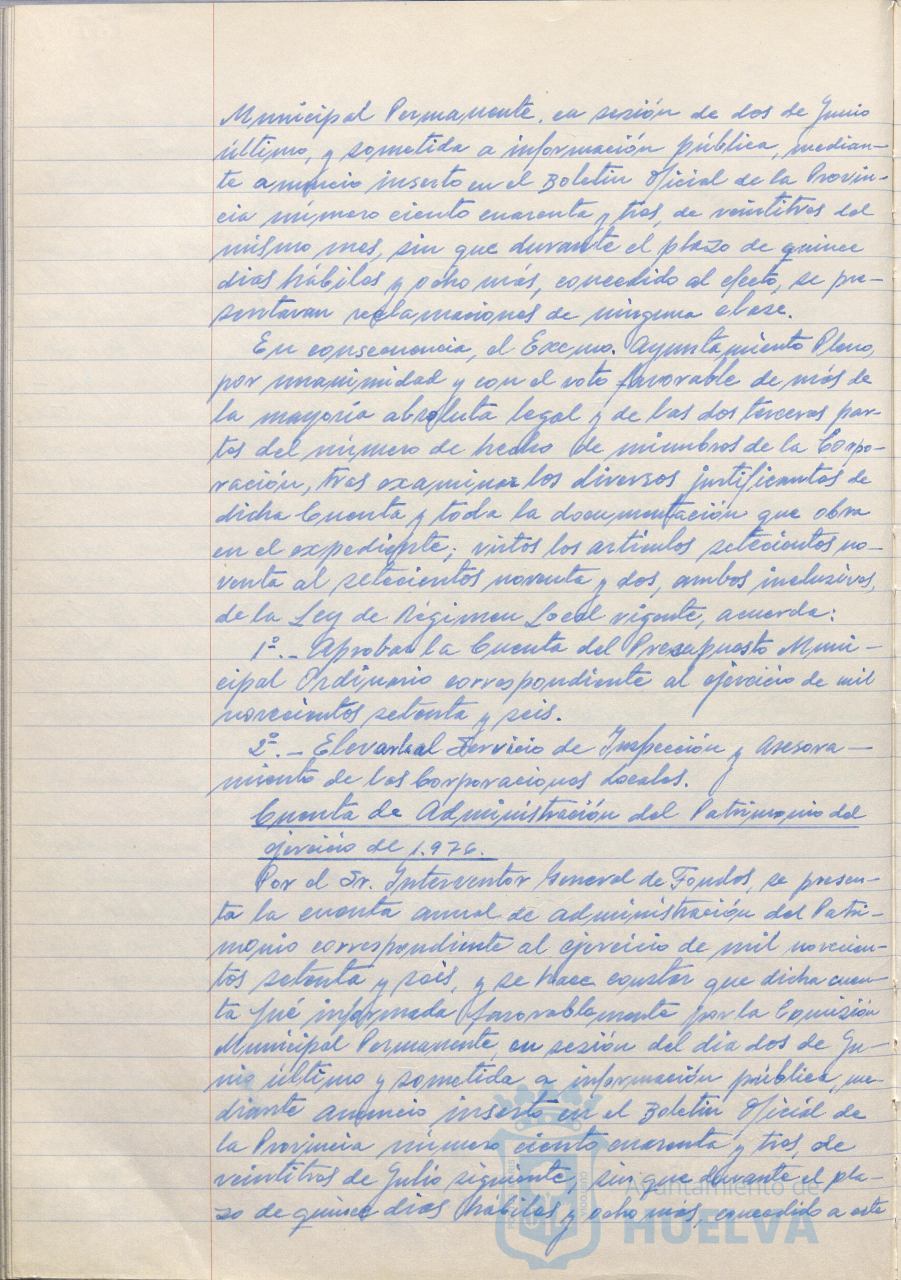 Municipal Permanente, en sesión de dos de Junio
último, y sometida a información pública, median-
te anuncio inserto en el Boletín Oficial de la Provin-
cia número ciento cuarenta y tres, de veintitres del
mismo mes, sin que durante el plazo de quince
dias hábiles y ocho más, concedido al efecto, se pre-
sentaran reclamaciones de ninguna clase.
En consecuencia, el Excmo. Ayuntamiento Pleno,
por unanimidad y con el voto favorable de más de
la mayoría absoluta legal y de las dos terceras par-
tes del número de hecho de miembros de la Corpo-
ración, tras examinar los diversos justificantes de
dicha Cuenta y toda la documentación que obra
en el expediente; vistos los artículos setecientos no-
venta al setecientos noventa y dos, ambos inclusives,
de la Ley de Régimen Local vigente, acuerda:
1º.- Aprobar la Cuenta del Presupuesto Muni-
cipal Ordinario correspondiente al ejercicio de mil
novecientos setenta y seis.
2º.- Elevarla al Servicio de Inspección y Asesora-
miento de las Corporaciones Locales.
Cuenta de Administración del Patrimonio del
ejercicio de 1.976.
Por el Sr. Interventor General de Fondos, se presen-
ta la cuenta anual de administración del Patri-
monio correspondiente al ejercicio de mil novecien-
tos setenta y seis, y se hace constar que dicha cuen-
ta fué informada favorablemente por la Comisión
Municipal Permanente, en sesión del dia dos de Ju-
nio último y sometida a información pública, me-
diante anuncio inserto en el Boletín Oficial de
la Provincia número ciento cuarenta y tres, de
veintitres de Julio siguiente, sin que durante el pla-
zo de quince dias hábiles y ocho más, concedido a este
Ayuntamiento de
HUELVA